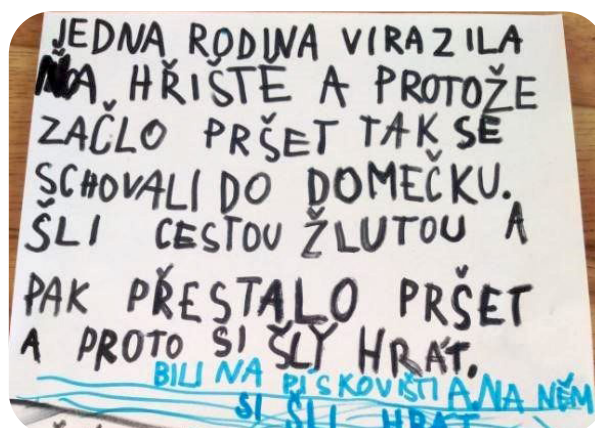 JEDNA RODINA VIRAZILA
NA HŘIŠTĚ A PROTOŽE
ZAČLO PRŠET TAK SE
SCHOVALI DO DOMEČKU.
ŠLI CESTOU ŽLUTOU A
PAK PŘESTALO PRŠET
A PROTO SI ŠLY HRÁT.
BILI NA PÍSKOVIŠTI A NA NĚM
SI ŠLI HRÁT